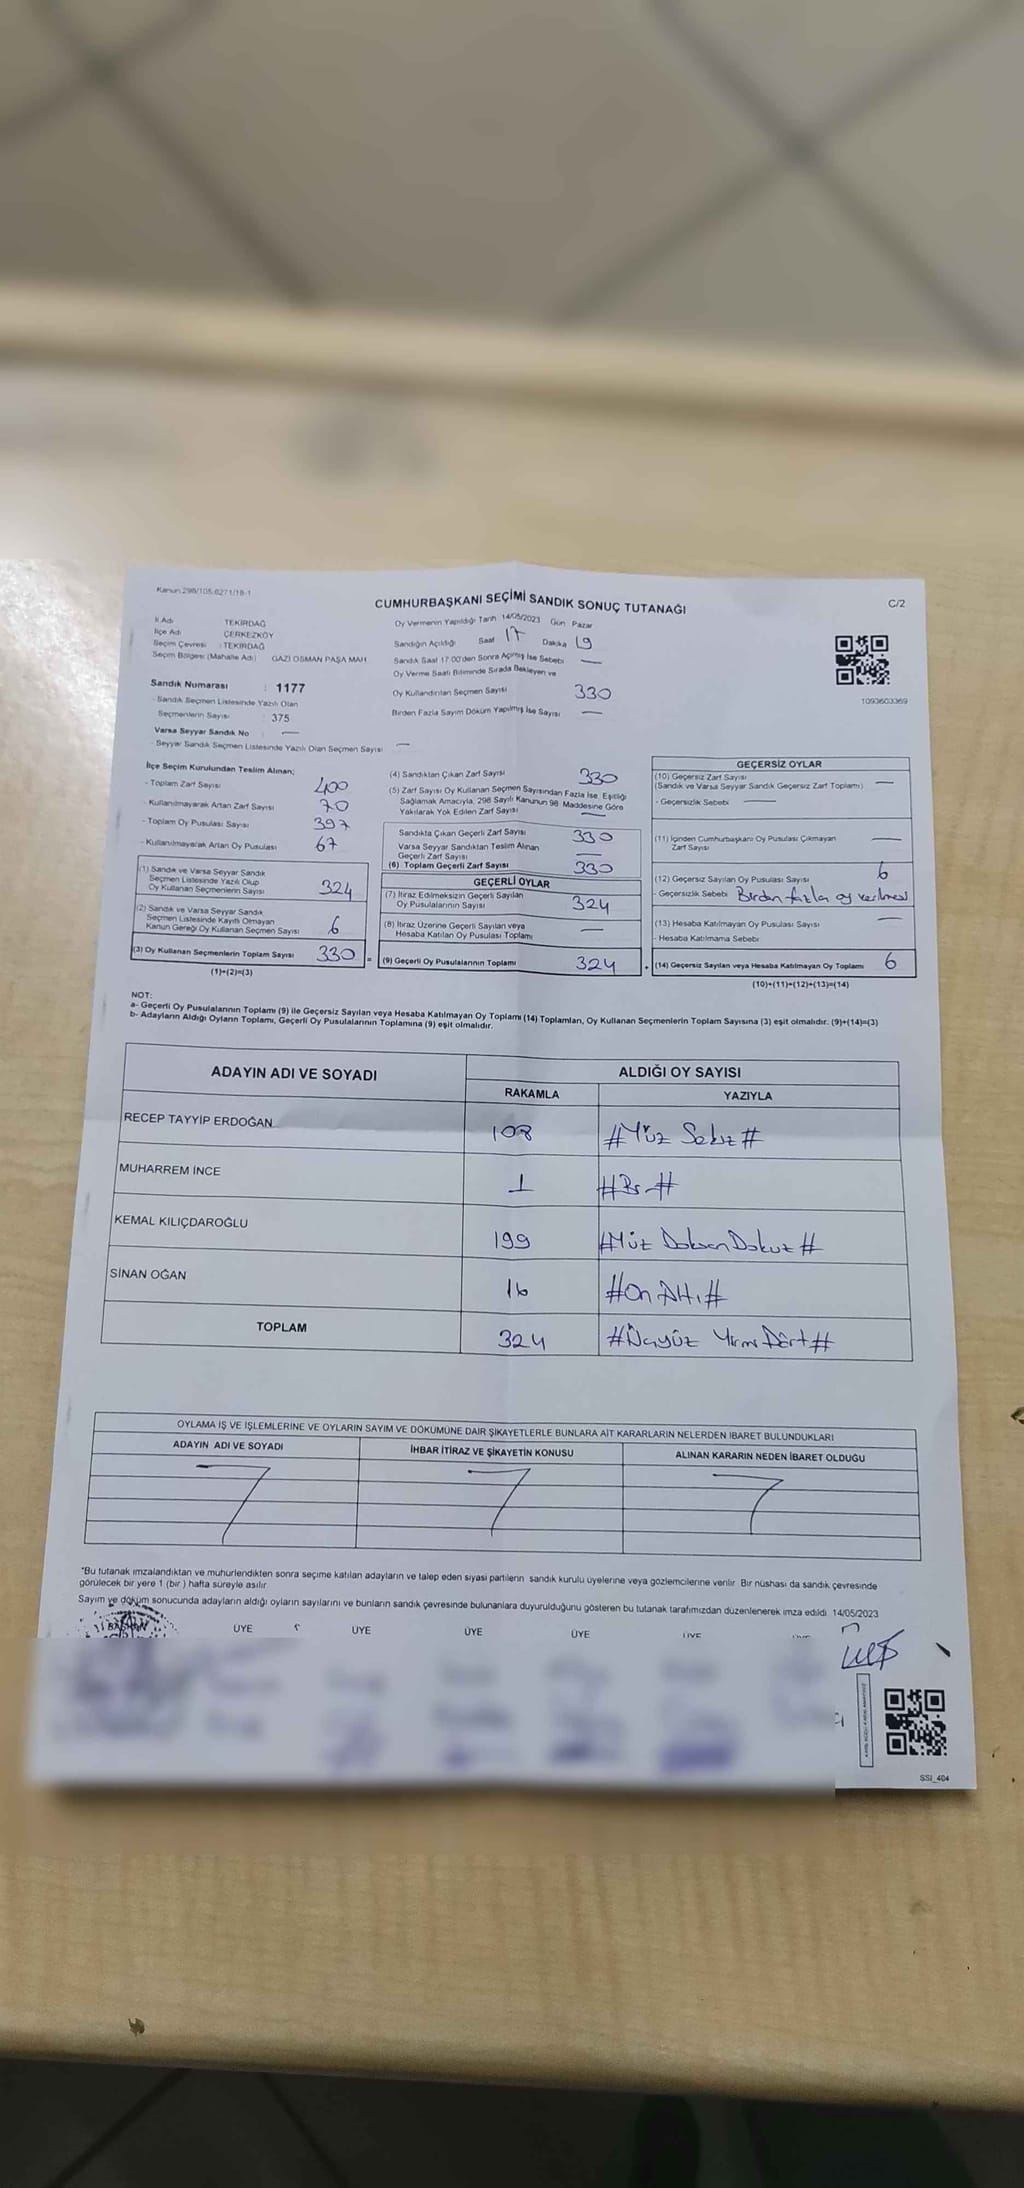 Kanun 298/105,6271/18-1
CUMHURBAŞKANI SEÇİMİ SANDIK SONUÇ TUTANAĞI
C/2
İl Adı TEKİRDAĞ
İlçe Adı ÇERKEZKÖY
Seçim Çevresi : TEKİRDAĞ
Seçim Bölgesi (Mahalle Adı) GAZİ OSMAN PAŞA MAH.
Oy Vermenin Yapıldığı Tarih 14/05/2023 Gün Pazar
Sandığın Açıldığı Saat 17 Dakika 19
Sandık Saat 17.00'den Sonra Açılmış İse Sebebi —
Oy Verme Saati Bitiminde Sırada Bekleyen ve
Oy Kullandırılan Seçmen Sayısı 330
Birden Fazla Sayım Döküm Yapılmış İse Sayısı —
1093603369
Sandık Numarası : 1177
- Sandık Seçmen Listesinde Yazılı Olan
Seçmenlerin Sayısı : 375
Varsa Seyyar Sandık No : —
- Seyyar Sandık Seçmen Listesinde Yazılı Olan Seçmen Sayısı —
İlçe Seçim Kurulundan Teslim Alınan;
- Toplam Zarf Sayısı 400
- Kullanılmayarak Artan Zarf Sayısı 70
- Toplam Oy Pusulası Sayısı 397
- Kullanılmayarak Artan Oy Pusulası 67
(1) Sandık ve Varsa Seyyar Sandık
Seçmen Listesinde Yazılı Olup
Oy Kullanan Seçmenlerin Sayısı 324
(2) Sandık ve Varsa Seyyar Sandık
Seçmen Listesinde Kayıtlı Olmayan
Kanun Gereği Oy Kullanan Seçmen Sayısı 6
(3) Oy Kullanan Seçmenlerin Toplam Sayısı 330
(1)+(2)=(3)
(4) Sandıktan Çıkan Zarf Sayısı 330
(5) Zarf Sayısı Oy Kullanan Seçmen Sayısından Fazla İse, Eşitliği
Sağlamak Amacıyla, 298 Sayılı Kanunun 98. Maddesine Göre
Yakılarak Yok Edilen Zarf Sayısı —
Sandıkta Çıkan Geçerli Zarf Sayısı 330
Varsa Seyyar Sandıktan Teslim Alınan
Geçerli Zarf Sayısı —
(6) Toplam Geçerli Zarf Sayısı 330
GEÇERLİ OYLAR
(7) İtiraz Edilmeksizin Geçerli Sayılan
Oy Pusulalarının Sayısı 324
(8) İtiraz Üzerine Geçerli Sayılan veya
Hesaba Katılan Oy Pusulası Toplamı —
= (9) Geçerli Oy Pusulalarının Toplamı 324
GEÇERSİZ OYLAR
(10) Geçersiz Zarf Sayısı —
(Sandık ve Varsa Seyyar Sandık Geçersiz Zarf Toplamı)
- Geçersizlik Sebebi —
(11) İçinden Cumhurbaşkanı Oy Pusulası Çıkmayan
Zarf Sayısı —
(12) Geçersiz Sayılan Oy Pusulası Sayısı 6
- Geçersizlik Sebebi Birden fazla oy verilmesi
(13) Hesaba Katılmayan Oy Pusulası Sayısı —
- Hesaba Katılmama Sebebi
+ (14) Geçersiz Sayılan veya Hesaba Katılmayan Oy Toplamı 6
(10)+(11)+(12)+(13)=(14)
NOT:
a- Geçerli Oy Pusulalarının Toplamı (9) ile Geçersiz Sayılan veya Hesaba Katılmayan Oy Toplamı (14) Toplamları, Oy Kullanan Seçmenlerin Toplam Sayısına (3) eşit olmalıdır. (9)+(14)=(3)
b- Adayların Aldığı Oyların Toplamı, Geçerli Oy Pusulalarının Toplamına (9) eşit olmalıdır.
ADAYIN ADI VE SOYADI ALDIĞI OY SAYISI
RAKAMLA YAZIYLA
RECEP TAYYİP ERDOĞAN 108 #Yüz Sekiz#
MUHARREM İNCE 1 #Bir#
KEMAL KILIÇDAROĞLU 199 #Yüz Doksan Dokuz#
SİNAN OĞAN 16 #On Altı#
TOPLAM 324 #Üçyüz Yirmi Dört#
OYLAMA İŞ VE İŞLEMLERİNE VE OYLARIN SAYIM VE DÖKÜMÜNE DAİR ŞİKAYETLERLE BUNLARA AİT KARARLARIN NELERDEN İBARET BULUNDUKLARI
ADAYIN ADI VE SOYADI İHBAR İTİRAZ VE ŞİKAYETİN KONUSU ALINAN KARARIN NEDEN İBARET OLDUĞU
*Bu tutanak imzalandıktan ve mühürlendikten sonra seçime katılan adayların ve talep eden siyasi partilerin sandık kurulu üyelerine veya gözlemcilerine verilir. Bir nüshası da sandık çevresinde
görülecek bir yere 1 (bir) hafta süreyle asılır.
Sayım ve döküm sonucunda adayların aldığı oyların sayılarını ve bunların sandık çevresinde bulunanlara duyurulduğunu gösteren bu tutanak tarafımızdan düzenlenerek imza edildi. 14/05/2023
BAŞKAN ÜYE ÜYE ÜYE ÜYE ÜYE
SSİ_404